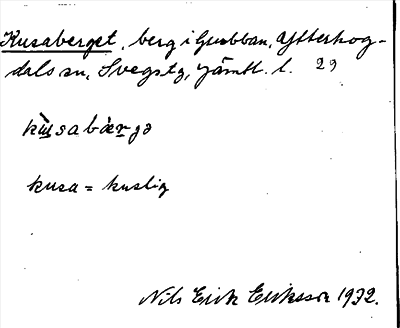 Kusaberget, berg i Gubban, Ytterhog-
dals sn, Svegs tg, Jämtl. l. 29
kùsabærgə
kusa = kuslig
Nils Erik Eriksson 1932.